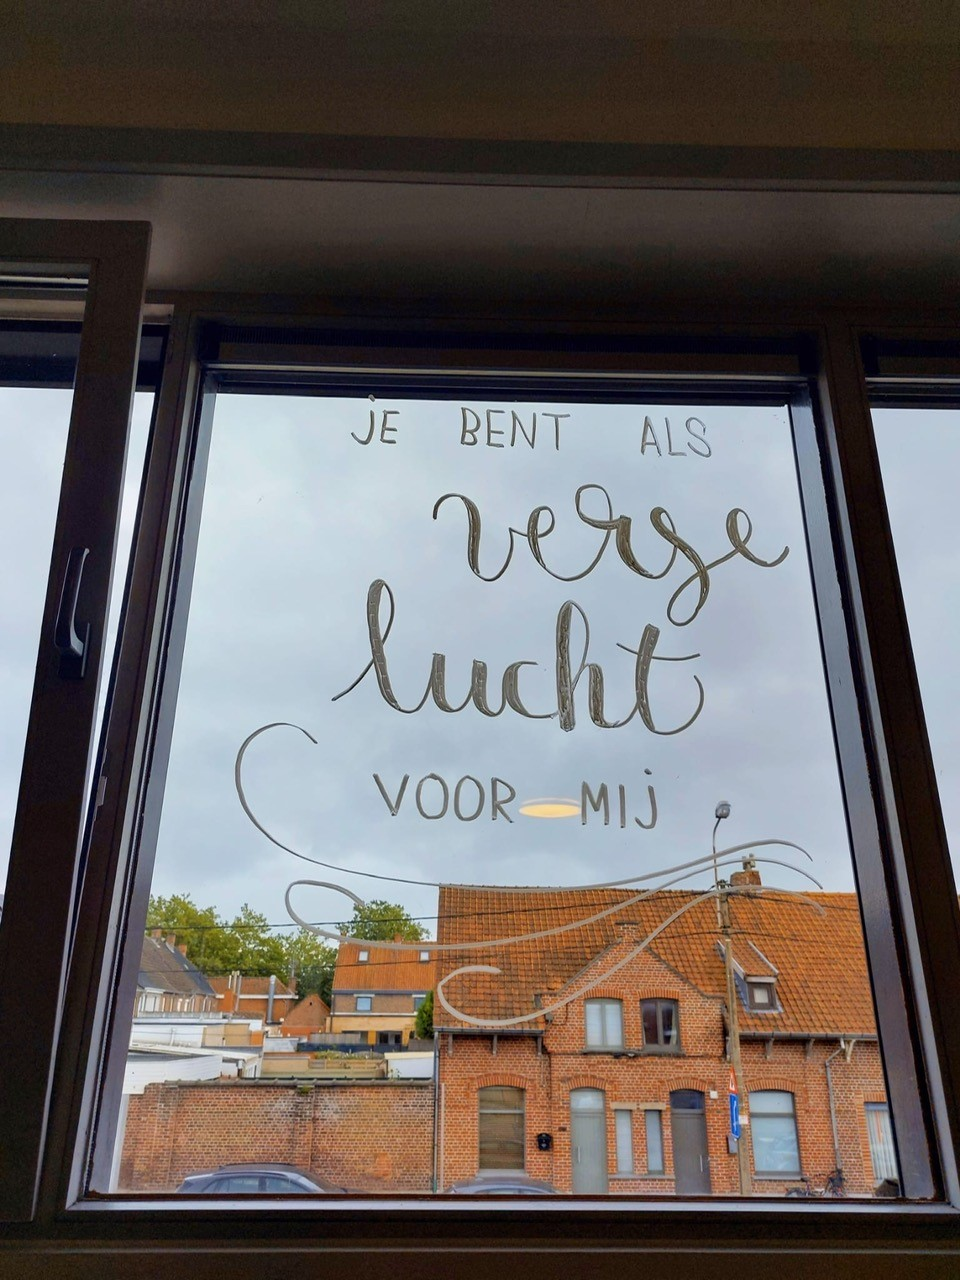 jE BENT ALS
verse
lucht
VOOR MIj